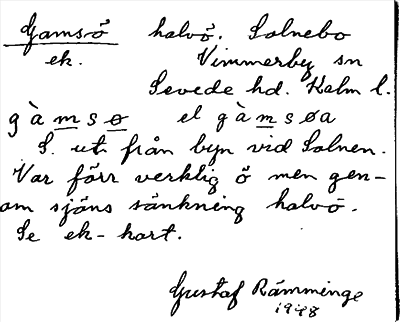 Gamsö halvö. Solnebo
ek. Vimmerby sn
Sevede hd. Kalm l.
gàmsø el gàmsøa
S. ut. från byn vid Solnen.
Var förr verklig ö men gen-
om sjöns sänkning halvö.
Se ek-kart.
Gustaf Rämminge
1948